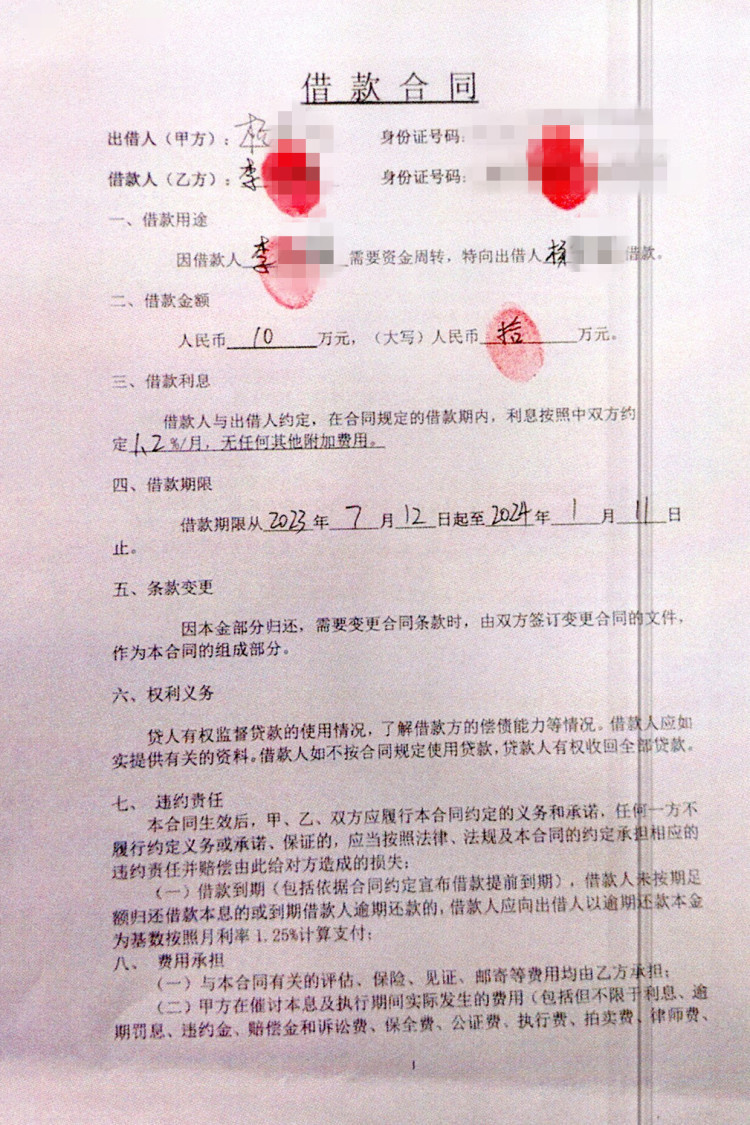 借款合同
出借人（甲方）： 身份证号码：
借款人（乙方）：李 身份证号码：
一、借款用途
因借款人李 需要资金周转，特向出借人杨 借款。
二、借款金额
人民币10万元，（大写）人民币拾万元。
三、借款利息
借款人与出借人约定，在合同规定的借款期内，利息按照中双方约
定1.2%/月，无任何其他附加费用。
四、借款期限
借款期限从2023年7月12日起至2024年1月11日
止。
五、条款变更
因本金部分归还，需要变更合同条款时，由双方签订变更合同的文件，
作为本合同的组成部分。
六、权利义务
贷人有权监督贷款的使用情况，了解借款方的偿债能力等情况。借款人应如
实提供有关的资料。借款人如不按合同规定使用贷款，贷款人有权收回全部贷款。
七、违约责任
本合同生效后，甲、乙、双方应履行本合同约定的义务和承诺，任何一方不
履行约定义务或承诺、保证的，应当按照法律、法规及本合同的约定承担相应的
违约责任并赔偿由此给对方造成的损失：
（一）借款到期（包括依据合同约定宣布借款提前到期），借款人未按期足
额归还借款本息的或到期借款人逾期还款的，借款人应向出借人以逾期还款本金
为基数按照月利率1.25%计算支付；
八、费用承担
（一）与本合同有关的评估、保险、见证、邮寄等费用均由乙方承担；
（二）甲方在催讨本息及执行期间实际发生的费用（包括但不限于利息、逾
期罚息、违约金、赔偿金和诉讼费、保全费、公证费、执行费、拍卖费、律师费、
1